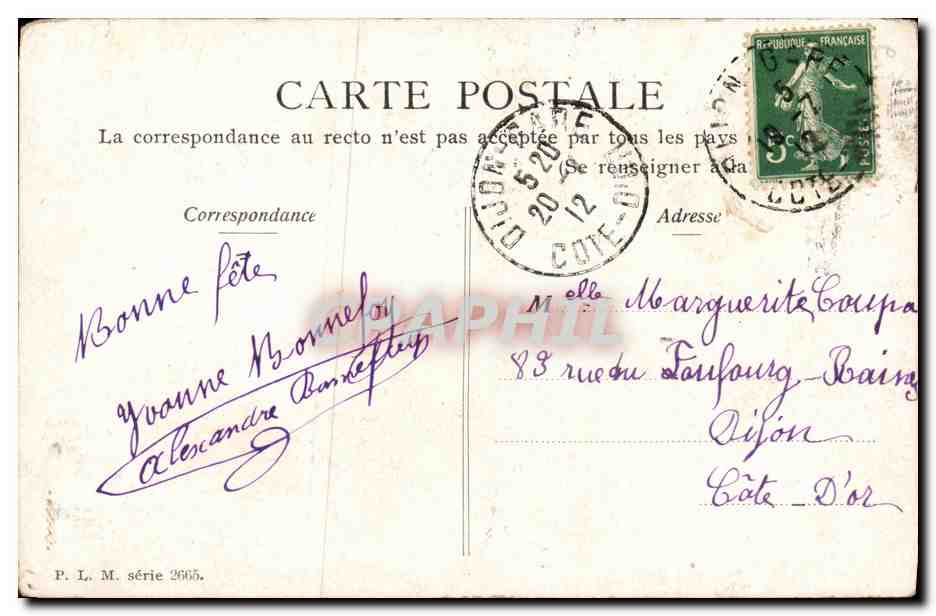 CARTE POSTALE
La correspondance au recto n'est pas acceptée par tous les pays
(Se renseigner à la
Correspondance
Adresse
REPUBLIQUE FRANÇAISE
5c
POSTES
DIJON-GARE
5 20
20 - 7
12
COTE-D'OR
Bonne fête
Yvonne Bonnefoy
Alexandre Bonnefoy
Melle Marguerite Coupa
83 rue du Foufourg-Raines
Dijon
Côte-D'or
CPAPHIL
P. L. M. série 2665.